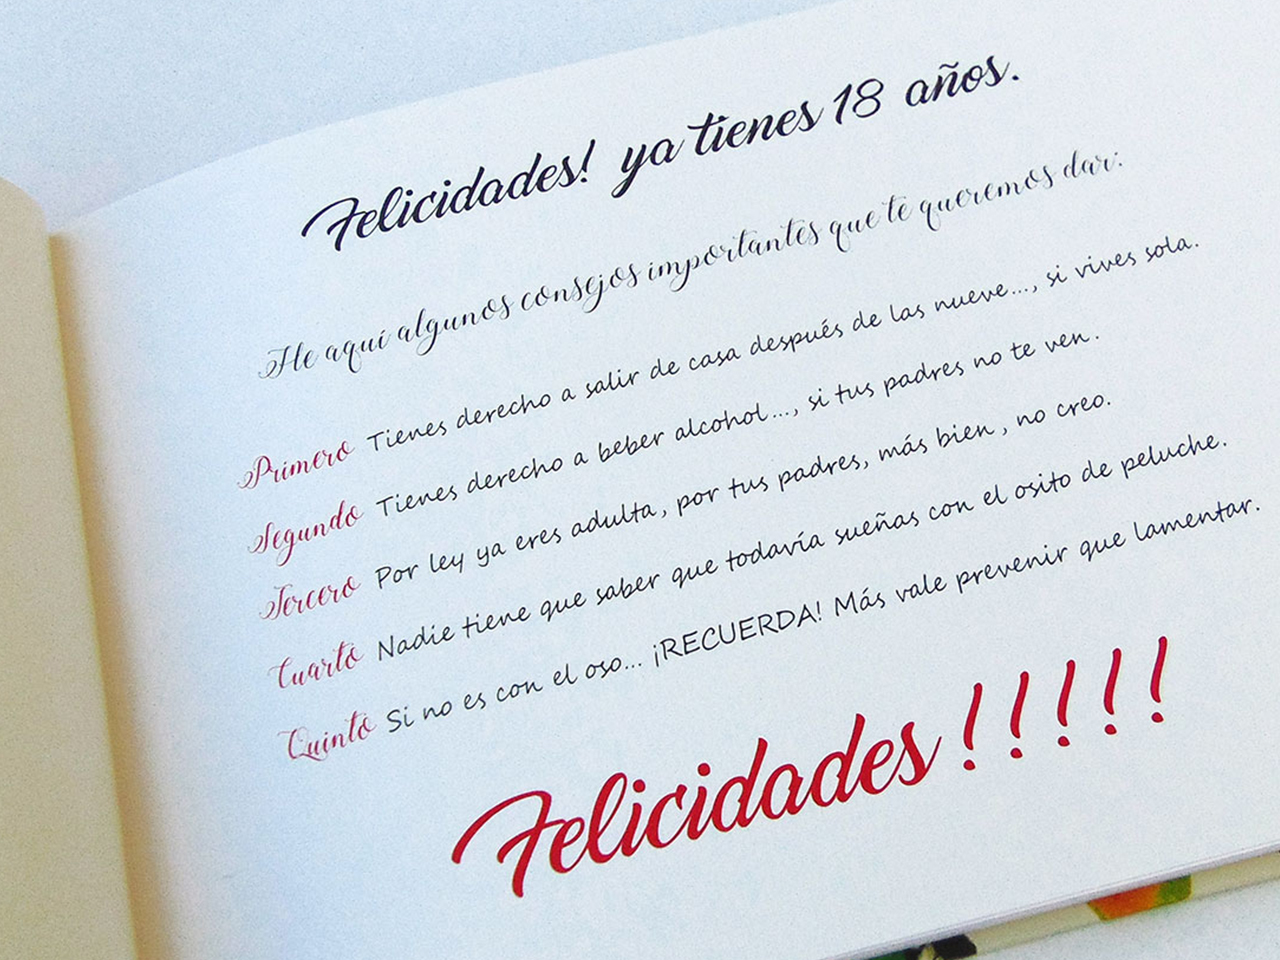 Felicidades! ya tienes 18 años.
He aquí algunos consejos importantes que te queremos dar:
Primero Tienes derecho a salir de casa después de las nueve..., si vives sola.
Segundo Tienes derecho a beber alcohol..., si tus padres no te ven.
Tercero Por ley ya eres adulta, por tus padres, más bien, no creo.
Cuarto Nadie tiene que saber que todavía sueñas con el osito de peluche.
Quinto Si no es con el oso... ¡RECUERDA! Más vale prevenir que lamentar.
Felicidades!!!!!